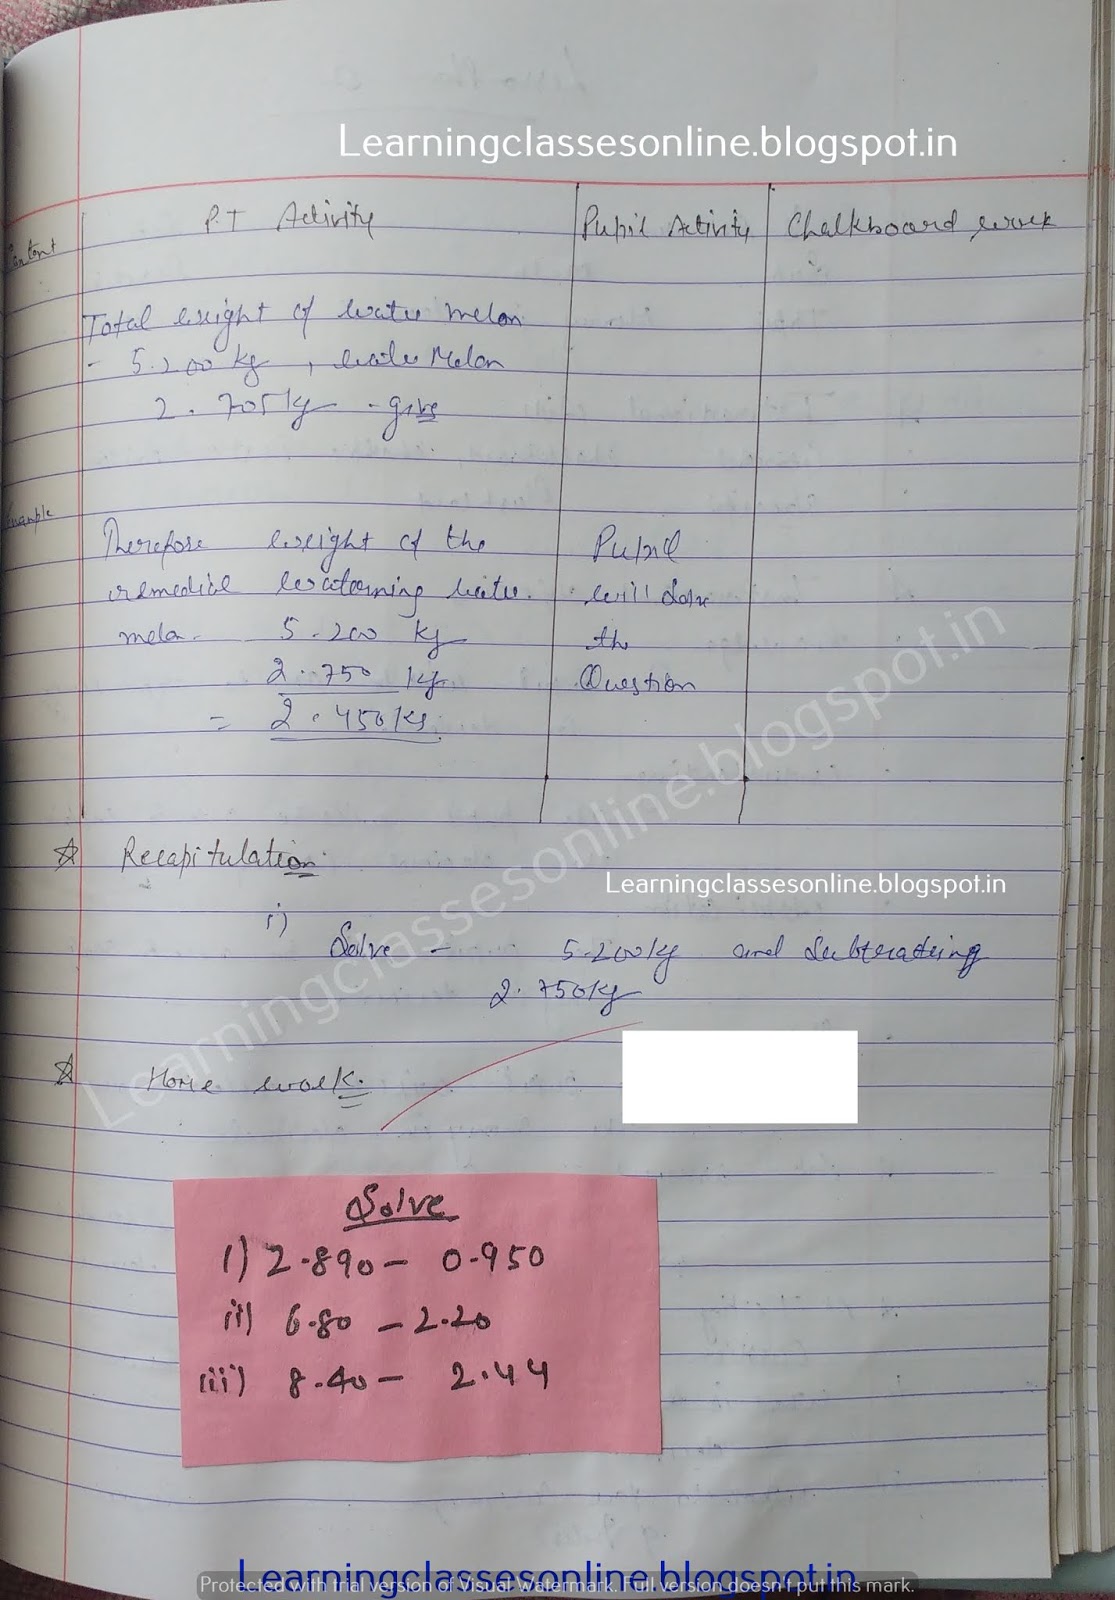 Learningclassesonline.blogspot.in
P.T Activity Pupil Activity Chalkboard work
Content
Total weight of water melon
- 5.200 kg, water Melon
2.705 kg - give
Example
Therefore weight of the Pupil
remedial water. will solve
melo- 5.200 kg the
2.750 kg Question
= 2.450 kg.
Recapitulation
i)
Solve - 5.200 kg and Subtrating
2.750 kg
Learningclassesonline.blogspot.in
Home work.
Solve
i) 2.890 - 0.950
ii) 6.80 - 2.20
iii) 8.40 - 2.44
Learningclassesonline.blogspot.in
Learningclassesonline.blogspot.in
Protected with trial version of Visual Watermark. Full version doesn't put this mark.